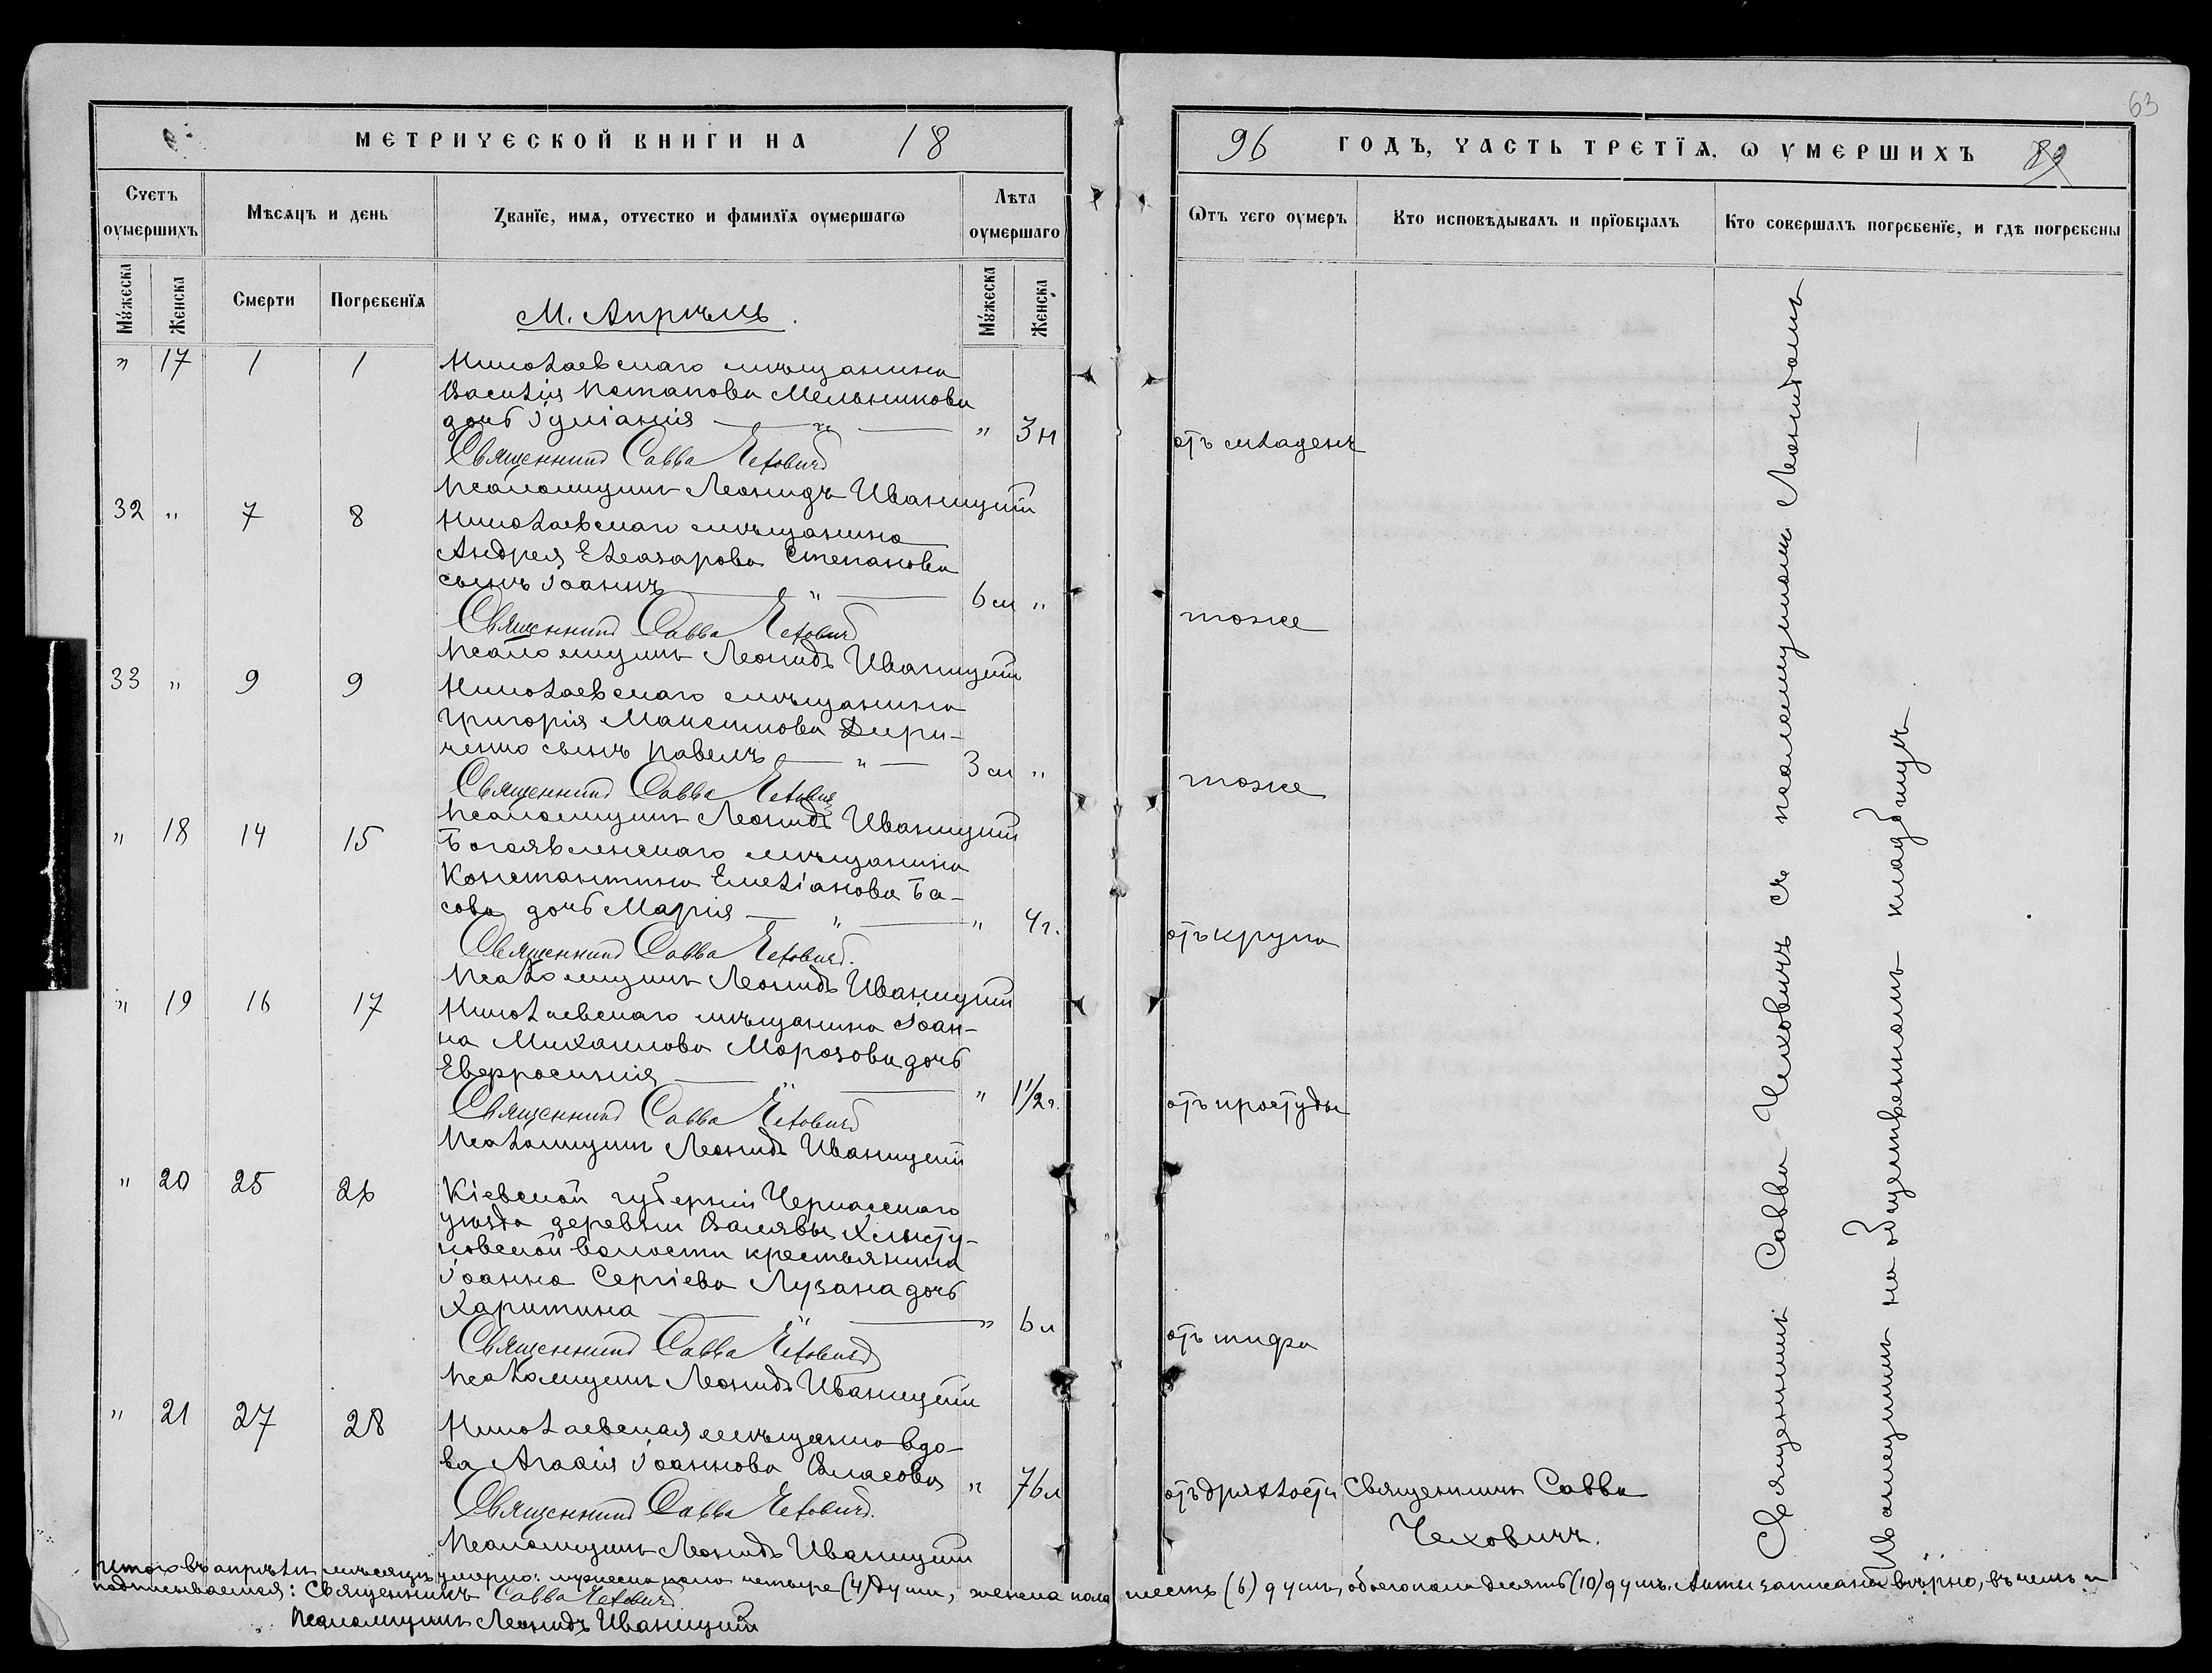 63
МЕТРИЧЕСКОЙ КНИГИ НА 18
96 ГОДЪ, ЧАСТЬ ТРЕТЇѦ, Ѡ УМЕРШИХЪ 89
Счетъ оумершихъ
Мѣсѧцъ и день
Званїе, имѧ, отчество и фамилїѧ оумершагѡ
Лѣта оумершаго
Ѿтъ чего оумеръ
Кто исповѣдывалъ и прїобщалъ
Кто совершалъ погребенїе, и гдѣ погребены
Мужеска
Женска
Смерти
Погребенїѧ
Мужеска
Женска
М. Апрѣль.
" 17 1 1 Николаевскаго мѣщанина
Василія Потапова Мельникова
дочь Іуліанія — " — " 3 н отъ младенч
Священникъ Савва Чеховичъ
Псаломщикъ Леонидъ Иваницкій
32 " 7 8 Николаевскаго мѣщанина
Андрея Елеазарова Степанова
сынъ Іоаннъ — " — 6 м " тоже
Священникъ Савва Чеховичъ
Псаломщикъ Леонидъ Иваницкій
33 " 9 9 Николаевскаго мѣщанина
Григорія Максимова
сынъ Павелъ — " — 3 м " тоже
Священникъ Савва Чеховичъ
Псаломщикъ Леонидъ Иваницкій
" 18 14 15 Богоявленскаго мѣщанина
Константина Емеліанова Ба-
сова дочь Марія — " — " 4 г. отъ крупа
Священникъ Савва Чеховичъ.
Псаломщикъ Леонидъ Иваницкій
" 19 16 17 Николаевскаго мѣщанина Іоан-
на Михаилова Морозова дочь
Евфросинія — " — " 1 1/2 г. отъ простуды
Священникъ Савва Чеховичъ
Псаломщикъ Леонидъ Иваницкій
" 20 25 26 Кіевской губерніи Черкасскаго
уѣзда деревни Валявы Хлысту-
новской волости крестьянина
Іоанна Сергіева Лузана дочь
Харитина — " — " 6 л отъ тифа
Священникъ Савва Чеховичъ
Псаломщикъ Леонидъ Иваницкій
" 21 27 28 Николаевская мѣщанка вдо-
ва Агафія Іоаннова Власова " 76 л отъ дряхлости Священникъ Савва
Чеховичъ.
Священникъ Савва Чеховичъ.
Псаломщикъ Леонидъ Иваницкій
Священникъ Савва Чеховичъ съ псаломщикомъ Леонидомъ
Иваницкимъ на общественномъ кладбищѣ
Итого въ апрѣлѣ мѣсяцѣ умерло: мужеска пола четыре (4) души, женска пола шесть (6) душъ, обоего пола десять (10) душъ. Акты записаны вѣрно, въ чемъ и
подписываемся: Священникъ Савва Чеховичъ
Псаломщикъ Леонидъ Иваницкій